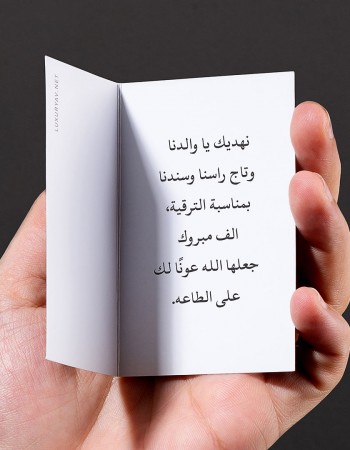 نهديك يا والدنا
وتاج راسنا وسندنا
بمناسبة الترقية،
الف مبروك
جعلها الله عونًا لك
على الطاعه.